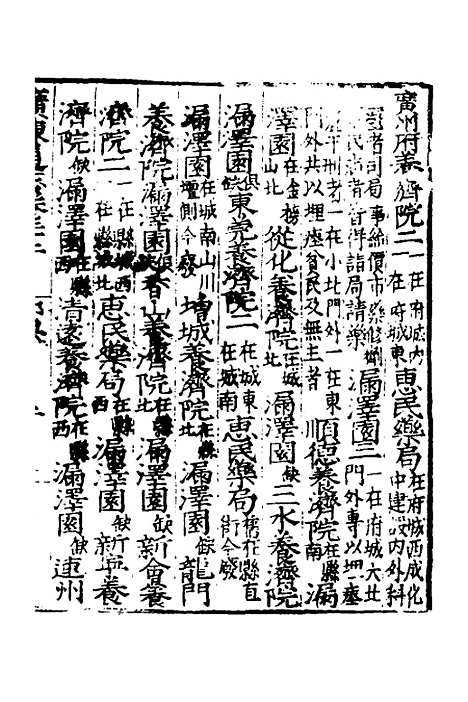 廣州府養濟院二一在府城內一在府城東惠民藥局在府城西成化中建設內外科
司局事給價市藥修劑民尚者皆得詣局請藥漏澤園三一在府城大北門外專以一塵
刑者一在小北門外一在東門外共以埋瘞貧民及無主者順德養濟院在縣南漏
澤園在金榜山北從化養濟院在城北漏澤園缺三水養濟院
漏澤園俱缺東莞養濟院二在城東在城南惠民藥局舊在縣直街今廢
漏澤園在城南山川壇側今廢增城養濟院在縣北漏澤園缺龍門
養濟院漏澤園俱缺香山養濟院在縣北漏澤園缺新會養
濟院二一在縣城西一在縣城北惠民藥局在縣西漏澤園缺新寧養
濟院缺漏澤園在縣西清遠養濟院在縣西漏澤園缺連州